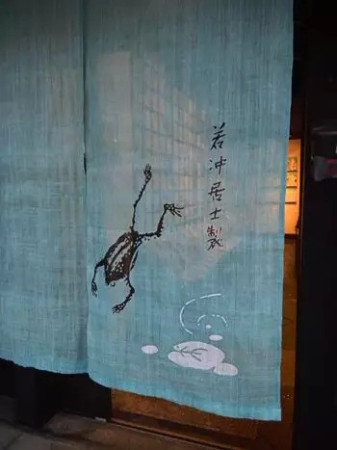 若冲居士製